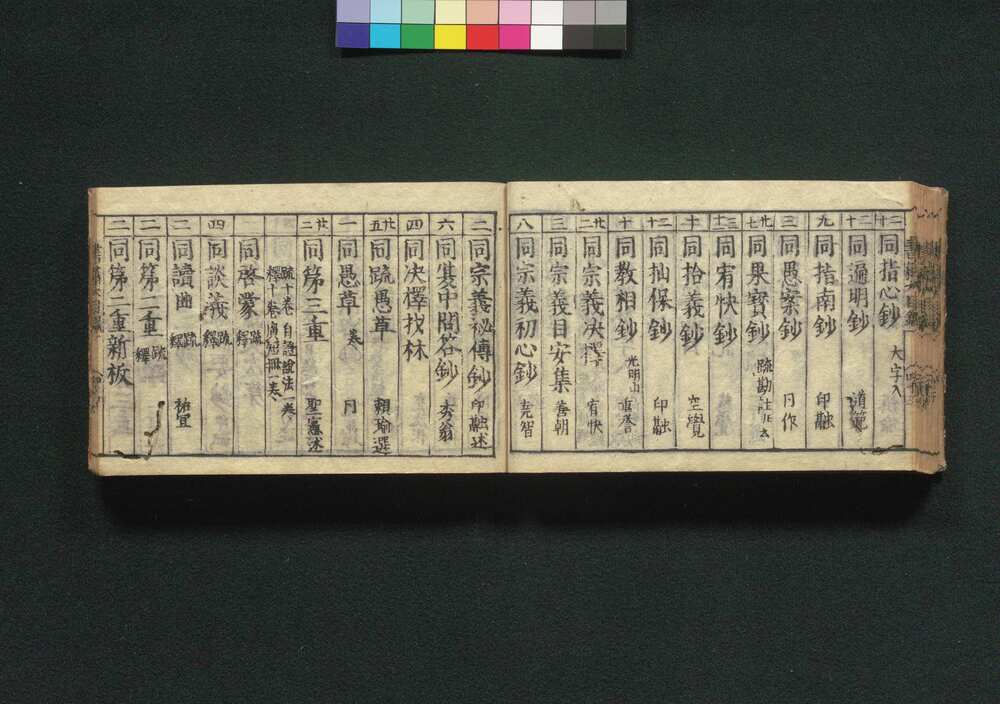 二十 同指心鈔 大字入
二十 同通明鈔 道範
九 同指南鈔 印融
三 同愚案鈔 同作
同杲寳鈔 疏勘註
三十 同宥快鈔
十 同拾義鈔 空覺
三十 同抄保鈔 印融
十 同教相鈔 光明山 重誉
廿二 同宗義决擇 宥快
三 同宗義目安集 善朝
八 同宗義初心鈔 尭智
二 同宗義秘傳鈔 印融述
六 同夏中問答鈔 秀翁
四 同决擇找林
廿五 同疏愚草 頼瑜選
一 同愚草 同
廿二 同第三重 聖憲述
疏十卷 自證説法一卷
釋十卷 短冊一卷
同啓蒙 疏 釋
四 同談義 疏 釋
二 同讀曲 疏 釋 祐宜
二 同第二重 疏 釋
二 同第二重新板